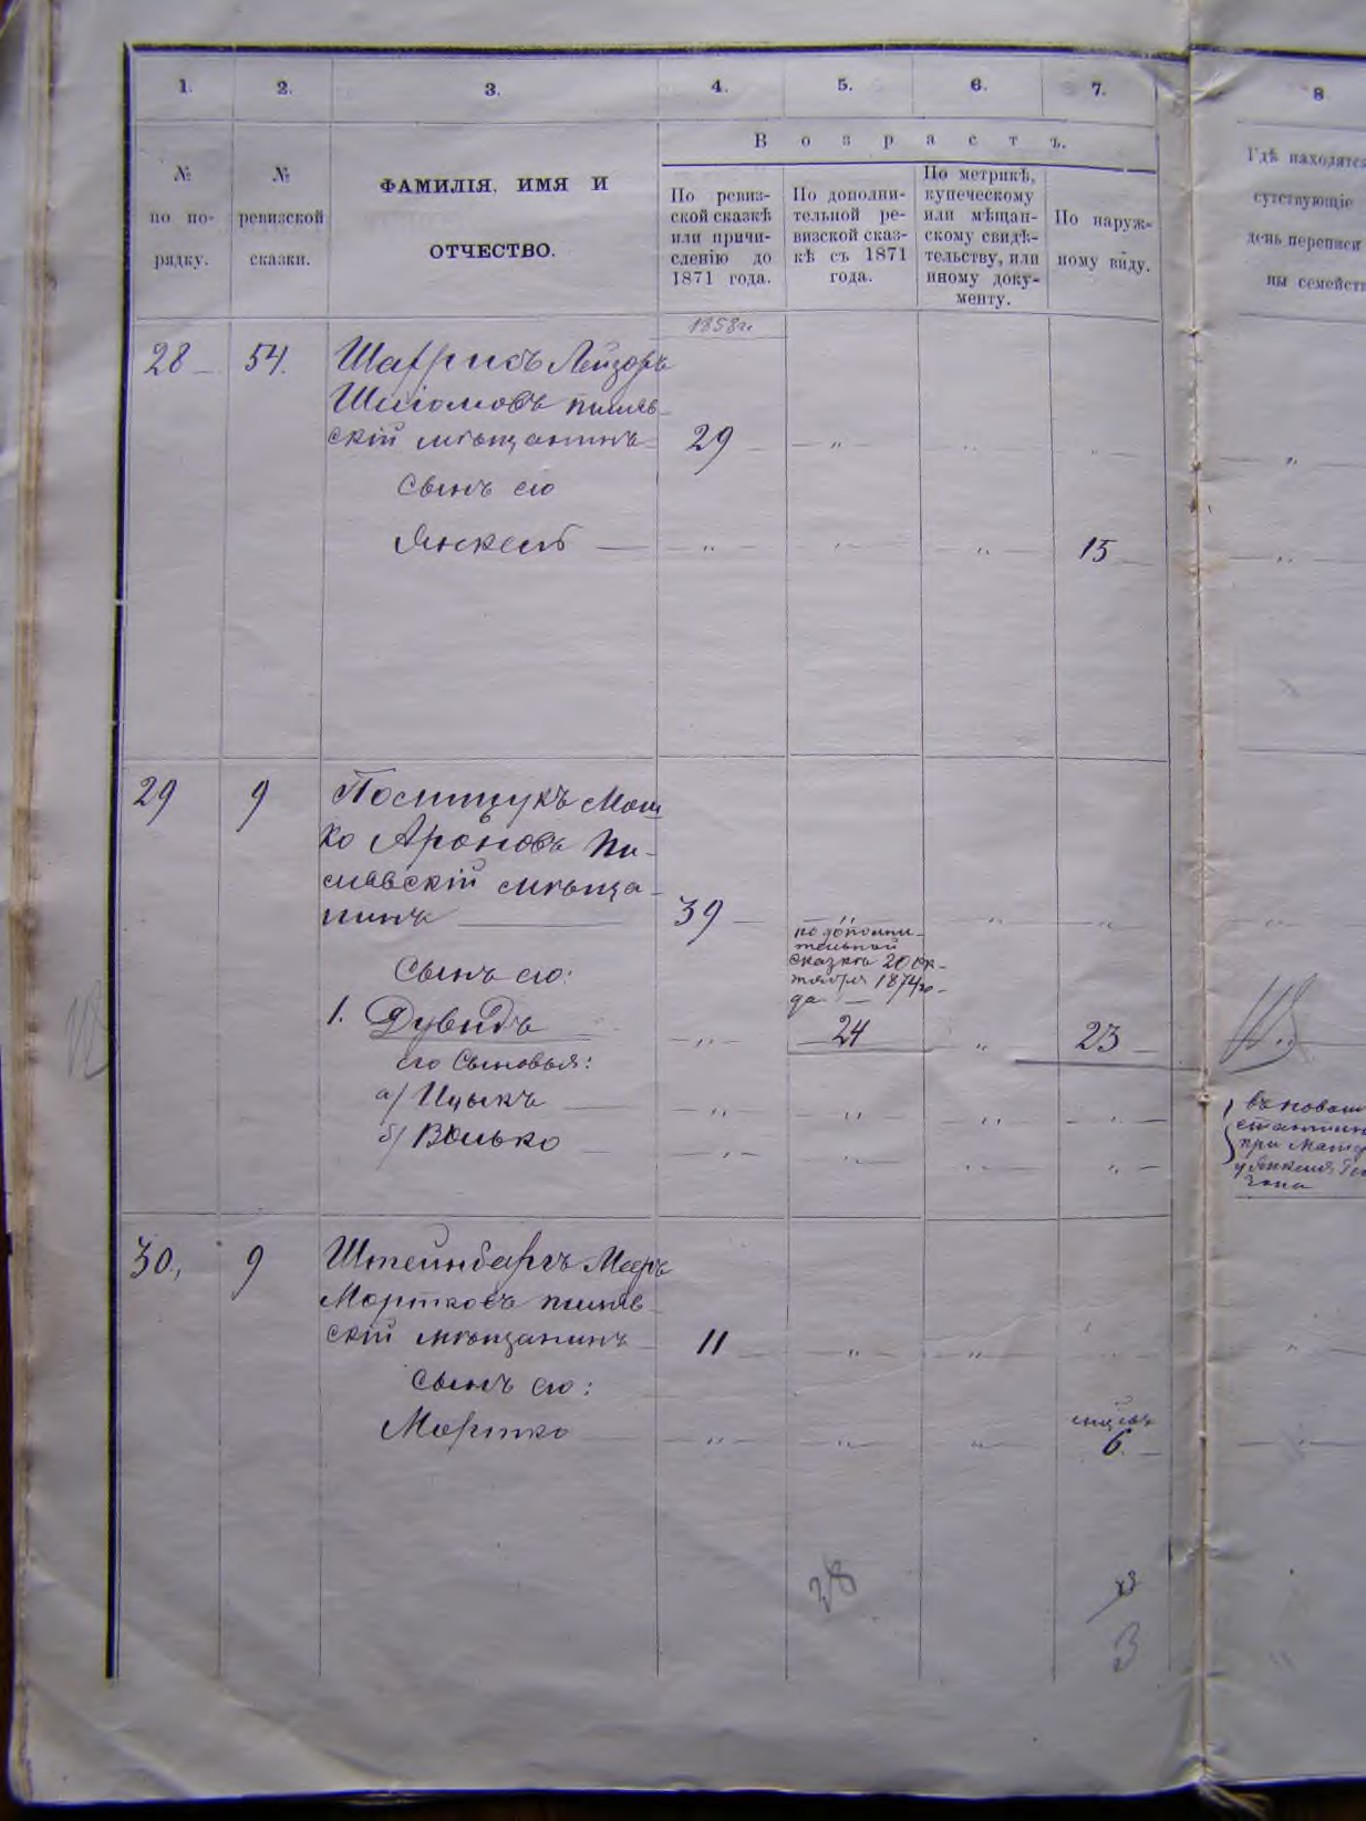 1. 2. 3. 4. 5. 6. 7. 8
В о з р а с т ъ.
№
по по-
рядку.
№
ревизской
сказки.
ФАМИЛІЯ, ИМЯ И
ОТЧЕСТВО.
По ревиз-
ской сказкѣ
или причи-
сленію до
1871 года.
По дополни-
тельной ре-
визской сказ-
кѣ съ 1871
года.
По метрикѣ,
купеческому
или мѣщан-
скому свидѣ-
тельству, или
иному доку-
менту.
По наруж-
ному виду.
Гдѣ находятся
сутствующіе
день переписи
ны семейств
1858 г.
28 54. Шафрикъ Лейзоръ
Шліомовъ пиляв-
скій мѣщанинъ 29
Сынъ его
Янкель 15
29 9 Полищукъ Мош
ко Ароновъ Пи-
лявскій мѣща-
нинъ 39
по дополни-
тельной
сказкѣ 20 ок-
тября 1874 го-
да
Сынъ его:
1. Дувидъ 24 23
его сыновья:
а) Ицыкъ
б) Волько
въ новой
при матер
у Янкеля
30, 9 Штейнбаргъ Мееръ
Мортковъ пиляв
скій мѣщанинъ 11
сынъ его:
Мортко 6.
28
3